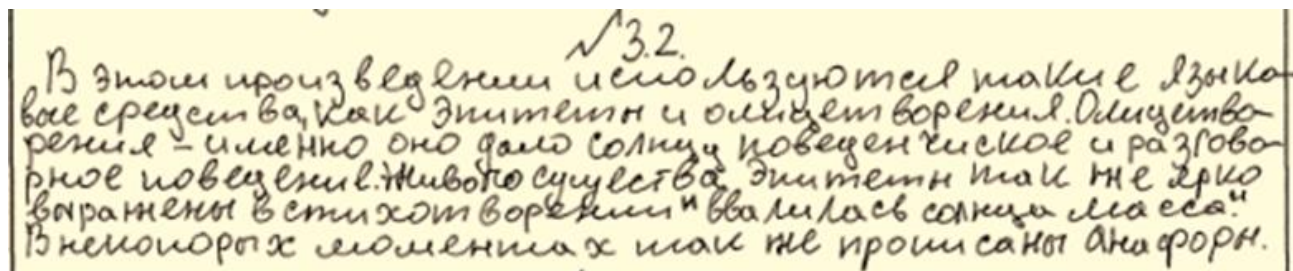 √3.2.
В этом произведении используются такие языко-
вые средства, как эпитеты и олицетворения. Олицетво-
рения – именно оно дало солнцу поведенчиское и разгово-
рное поведение. Живого существа. Эпитеты так же ярко
выражены в стихотворении "ввалилась солнца масса."
В некоторых моментах так же прописаны анафоры.